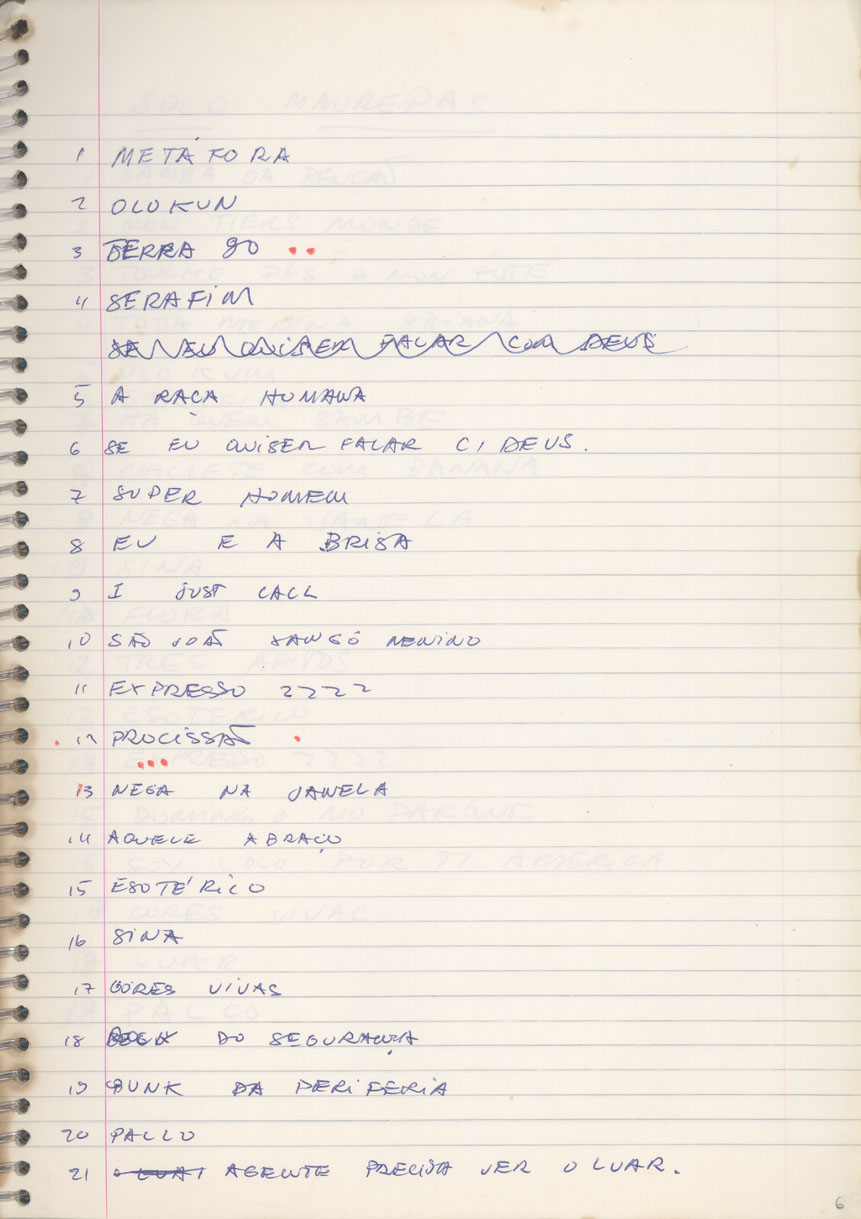 1 METÁFORA
2 OLOKUN
3 TERRA 90
4 SERAFIM
SE EU QUISER FALAR COM DEUS
5 A RAÇA HUMANA
6 SE EU QUISER FALAR C/ DEUS.
7 SUPER HOMEM
8 EU E A BRISA
9 I JUST CALL
10 SÃO JOÃO XANGÔ MENINO
11 EXPRESSO 2222
12 PROCISSÃO
13 NEGA NA JANELA
14 AQUELE ABRAÇO
15 ESOTÉRICO
16 SINA
17 CORES VIVAS
18 DO SEGURANÇA
19 PUNK DA PERIFERIA
20 PALCO
21 O LUAR A GENTE PRECISA VER O LUAR.
6